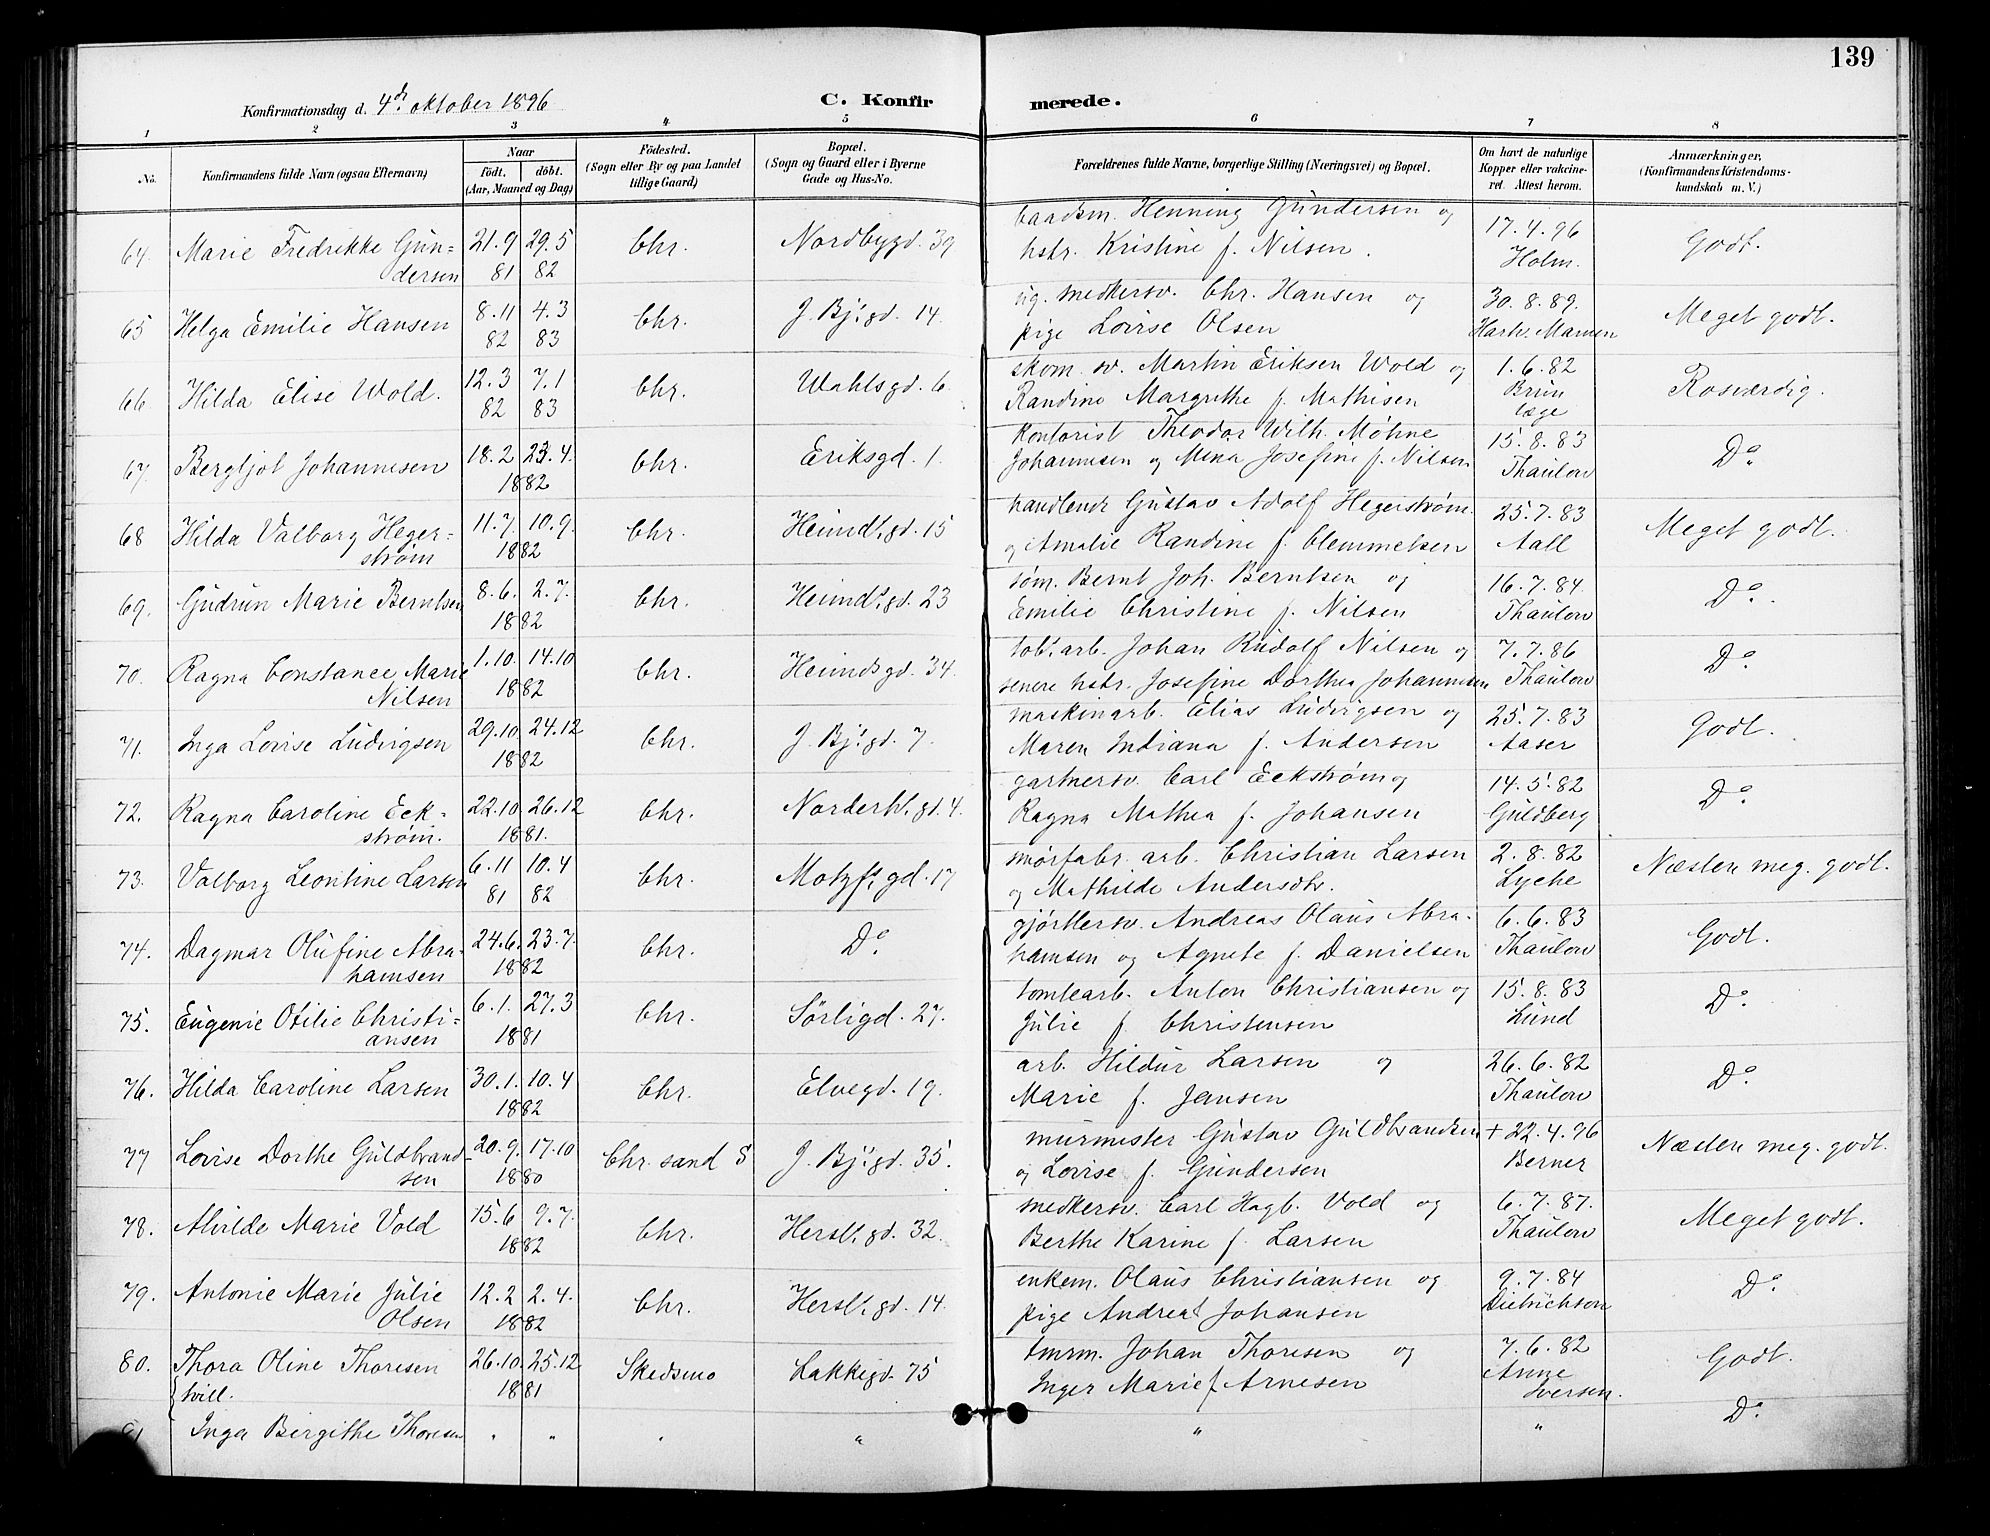 139
Konfirmationsdag d. 4de oktober 1896
C. Konfirmerede.
1 2 3 4 5 6 7 8
No. Konfirmandens fulde Navn (ogsaa Efternavn) Naar født. døbt. (Aar, Maaned og Dag) Fødested. (Sogn eller By og paa Landet tillige Gaard) Bopæl. (Sogn og Gaard eller i Byerne Gade og Hus-No.) Forældrenes fulde Navne, borgerlige Stilling (Næringsvei) og Bopæl. Om havt de naturlige Kopper eller vakcineret. Attest herom. Anmærkninger. (Konfirmandens Kristendomskundskab m. V.)
64. Marie Fredrikke Gun= 21.9 29.5 Chr. Nordbygd. 39 Henning Gundersen og 17.4.96 Godt.
dersen 81 82 hstr. Kristine f. Nilsen. Holm.
65 Helga Emilie Hansen 8.11 4.3 Chr. J. Bj. gd. 14. ug. smedkersv. Chr. Hansen og 30.8.89. Meget godt.
82 83 pige Lovise Olsen
66 Hilda Elise Wold. 12.3 7.1 Chr. Wahlsgd. 6. skom. sv. Martin Eriksen Wold og 1.6.82 Rosværdig.
82 83 Randine Margrethe f. Mathisen Brun læge
67. Bergljot Johannesen 18.2 23.4. Chr. Eriksgd. 1. Kontorist Theodor Wilh. Møhne 15.8.83 Do
1882 Johannesen og Mina Josefine f. Nilsen Thaulow
68 Hilda Valborg Heger= 11.7. 10.9. Chr. Heimd. gd. 15 handlende Gustav Adolf Hegerstrøm. 25.7.83 Meget godt.
strøm 1882 og Amalie Randine f. Clemmetsen Aall
69. Gudrun Marie Berntsen 8.6. 2.7. Chr. Heimd. gd. 23 søm. Bernt Joh. Berntsen og 16.7.84. Do.
1882 Emilie Christine f. Nilsen Thaulow
70. Ragna Constance Marie 1.10. 14.10 Chr. Heimdsgd. 34. tob. arb. Johan Rudolf Nilsen og 7.7.86 Do
Nilsen 1882 senere hstr. Josefine Dorthea Johannesen Thaulow
71. Inga Lovise Ludvigsen 29.10. 24.12 Chr. J. Bj. gd. 7. maskinarb. Elias Ludvigsen og 25.7.83 Godt.
1882 Maren Indiana f. Andersen Aaser
72. Ragna Caroline Eck= 22.10. 26.12 Chr. Norderh. gd. 4. gartnersv. Carl Eckstrøm og 14.5.82 Do
strøm. 1881. Ragna Mathea f. Johansen Guldberg
73. Valborg Leontine Larsen 6.11 10.4 Chr. Motzf. gd. 17 smørfabr. arb. Christian Larsen 2.8.82 Næsten meg. godt.
81 82 og Mathilde Andersdtr. Lyche
74. Dagmar Olufine Abra= 24.6. 23.7. Chr. Do gjørtlersv. Andreas Olaus Abra= 6.6.83 Godt.
hamsen 1882 hamsen og Agnete f. Danielsen Thaulow
75. Eugenie Otilie Christi= 6.1. 27.3 Chr. Sørligd. 27. tomtearb. Anton Christiansen og 15.8.83 Do
ansen 1881 Julie f. Christensen Lund
76. Hilda Caroline Larsen 30.1. 10.4 Chr. Elvegd. 19. arb. Hildur Larsen og 26.6.82 Do
1882 Marie f. Jansen Thaulow
77 Lovise Dorthe Guldbrand 20.9. 17.10 Chr. sand S J. Bj. gd. 35. murmester Gustav Guldbrandsen + 22.4.96 Næsten meg. godt.
sen 1880 og Lovise f. Gundersen Berner
78. Alvilde Marie Vold 15.6 9.7. Chr. Hersl. gd. 32. smedkersv. Carl Hagb. Vold og 6.7.87. Meget godt.
1882 Berthe Karine f. Larsen Thaulow
79. Antonie Marie Julie 12.2 2.4. Chr. Hersl. gd. 14. enkem. Olaus Christiansen og 9.7.84 Do
Olsen 1882 pige Andrea Johansen Dietrichson
80. Thora Oline Thoresen 26.10. 25.12 Skedsmo Lakkegd. 75 tmrm. Johan Thoresen og 7.6.82 Godt.
tvill. 1881 Inger Marie f. Arnesen Anne Iversen.
Inga Birgithe Thoresen " " " " " " Do